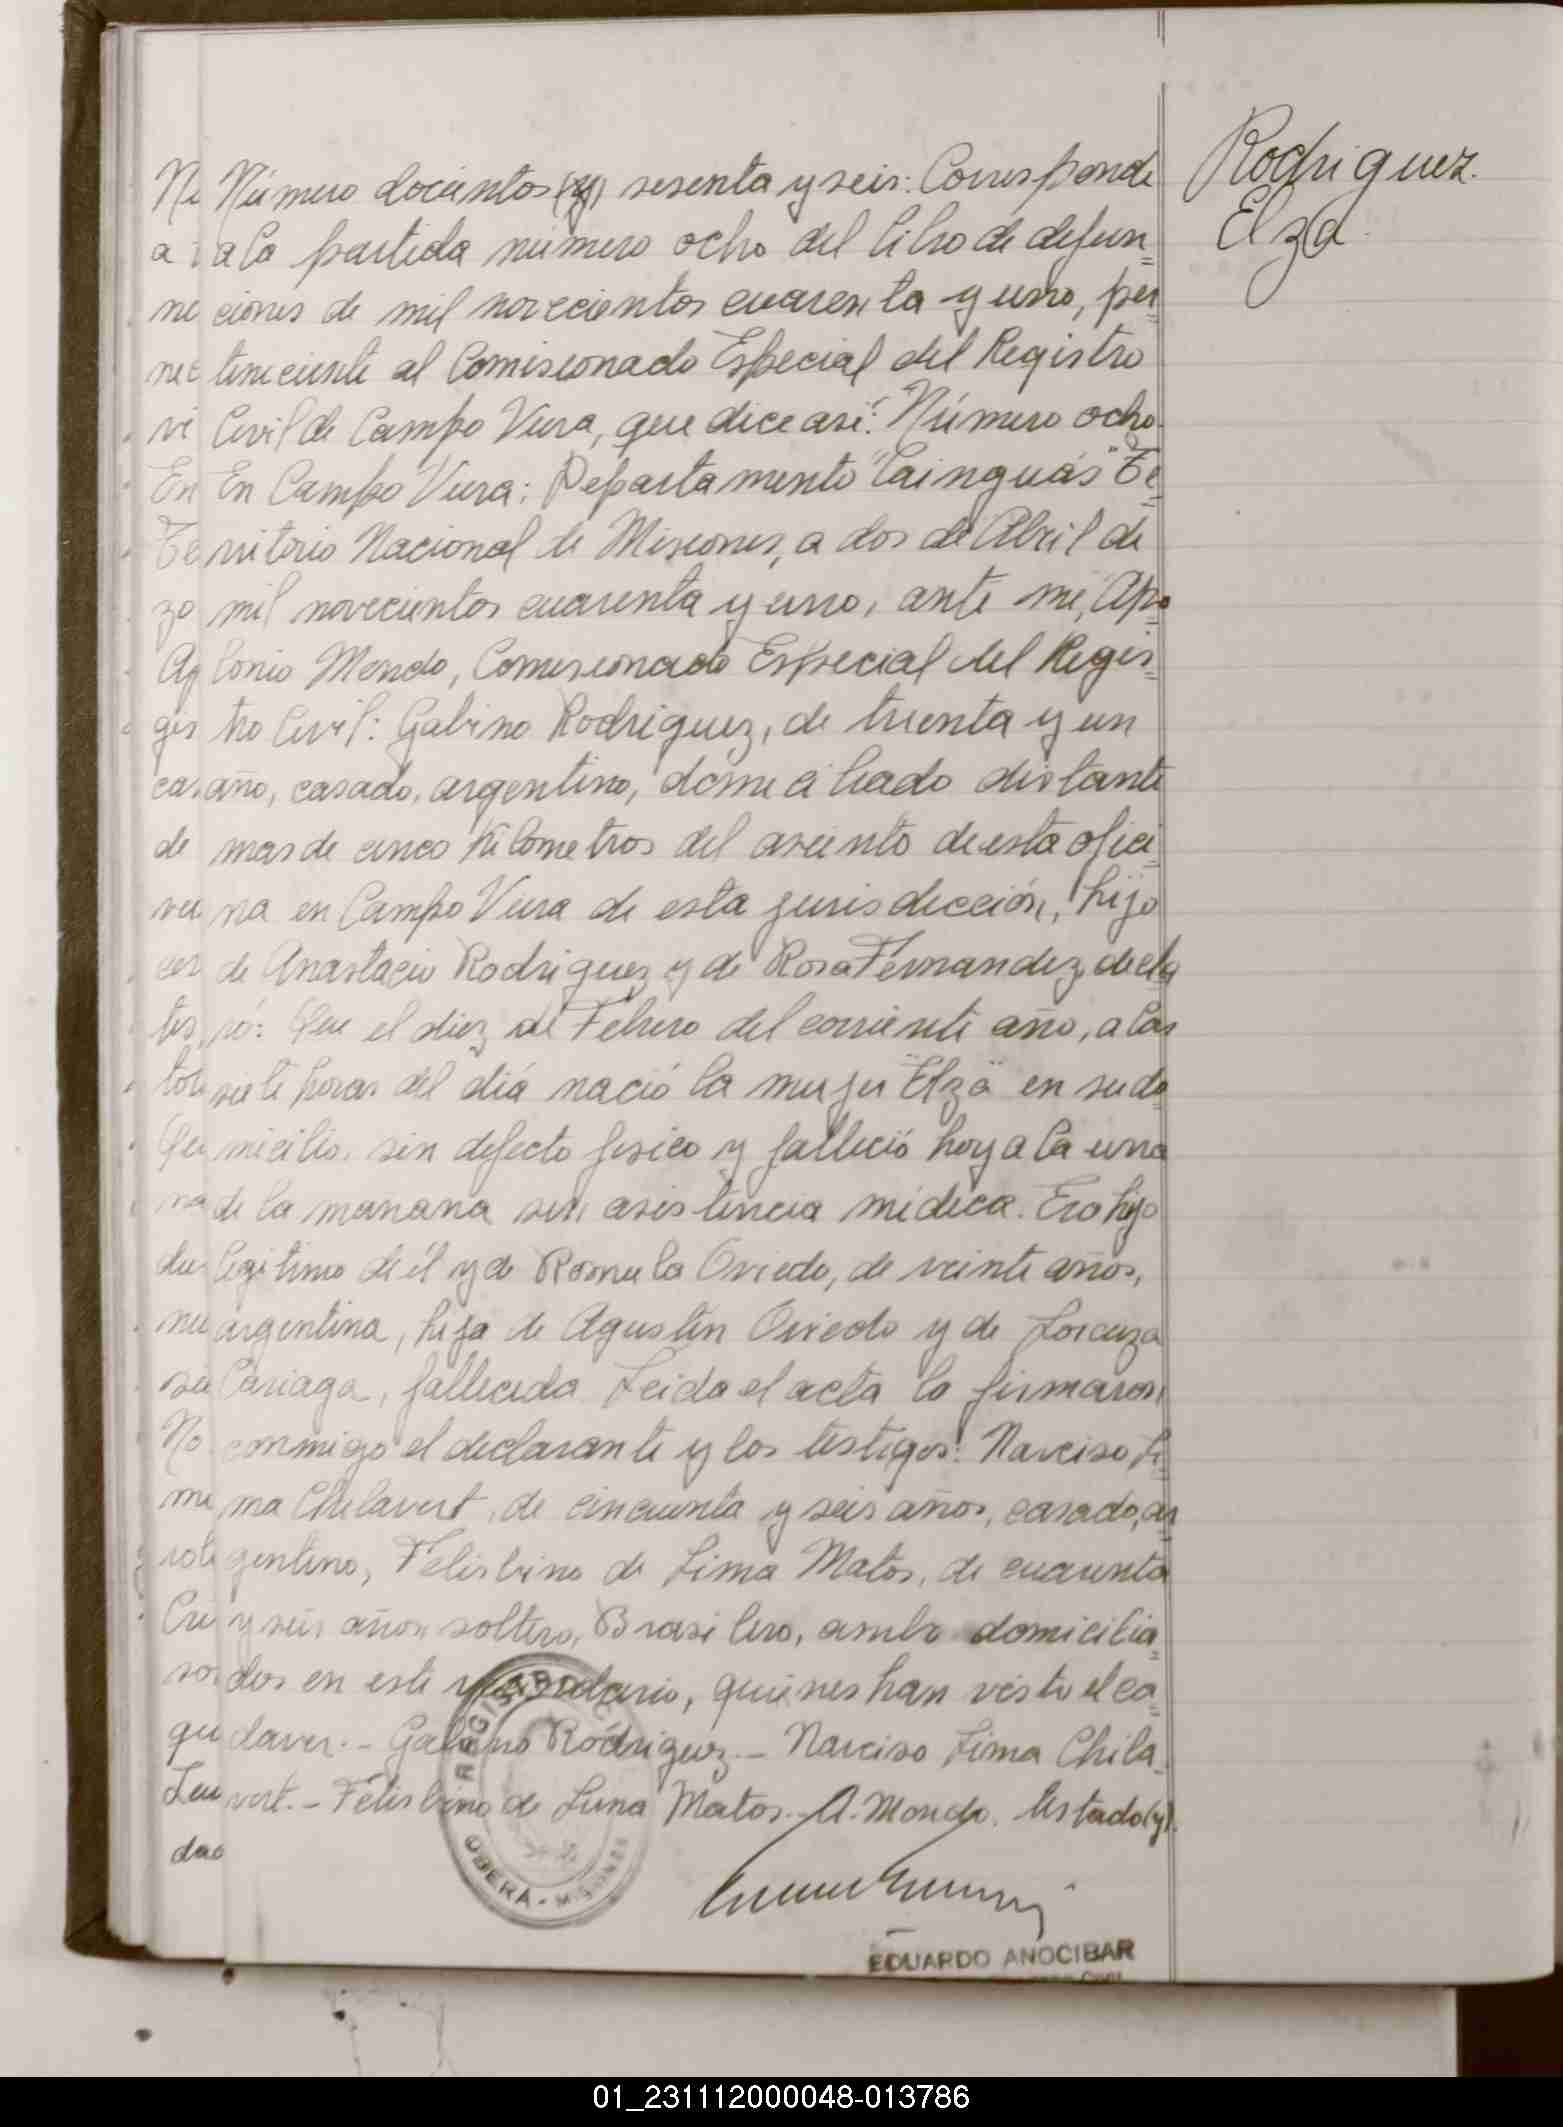 Rodriguez.
Elza.
Número docientos (y) sesenta y seis: Corresponde
a la partida número ocho del Libro de defun=
ciones de mil novecientos cuarenta y uno, per=
teneciente al Comisionado Especial del Registro
Civil de Campo Viera, que dice así: "Número ocho.
En Campo Viera: Departamento "Cainguás" Te=
rritorio Nacional de Misiones, a dos de Abril de
mil novecientos cuarenta y uno, ante mi, Apo=
lonio Mondo, Comisionado Especial del Regis=
tro Civil: Gabino Rodriguez, de treinta y un
año, casado, argentino, domiciliado distante
mas de cinco kilometros del asiento de esta ofici=
na en Campo Viera de esta jurisdicción, hijo
de Anastacio Rodriguez y de Rosa Fernandez, decla
ró: Que el diez de Febrero del corriente año, a las
siete horas del diá nació la mujer "Elza" en su do
micilio, sin defecto fisico y falleció hoy a la una
de la mañana sin asistencia médica. Era hijo
legitimo de él y de Romula Oviedo, de veinte años,
argentina, hija de Agustin Oviedo y de Lorenza
Cariaga, fallecida. Leida el acta la firmaron
conmigo el declarante y los testigos: Narciso Li=
ma Chilavert, de cincuenta y seis años, casado, ar
gentino, Felisbino de Lima Matos, de cuarenta
y seis años soltero, Brasilero, ambos domicilia=
dos en este vecindario, quienes han visto el ca=
daver.- Gabino Rodriguez.- Narciso Lima Chila=
vert.- Felisbino de Lima Matos.- A. Mondo. Testado (y).
REGISTRO
OBERA - MISIONES
EDUARDO ANOCIBAR
01_231112000048-013786